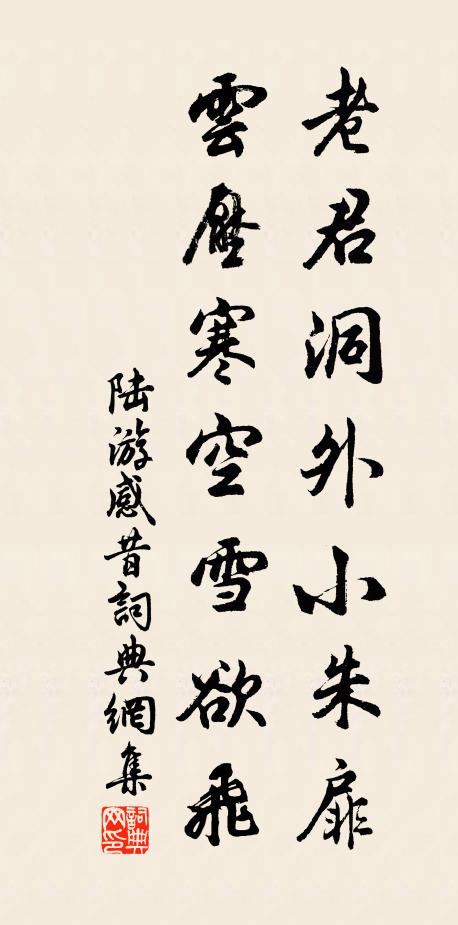 老君洞外小朱扉
雲壓寒空雪欲飛
陆游感昔詞典網集
詞典網印